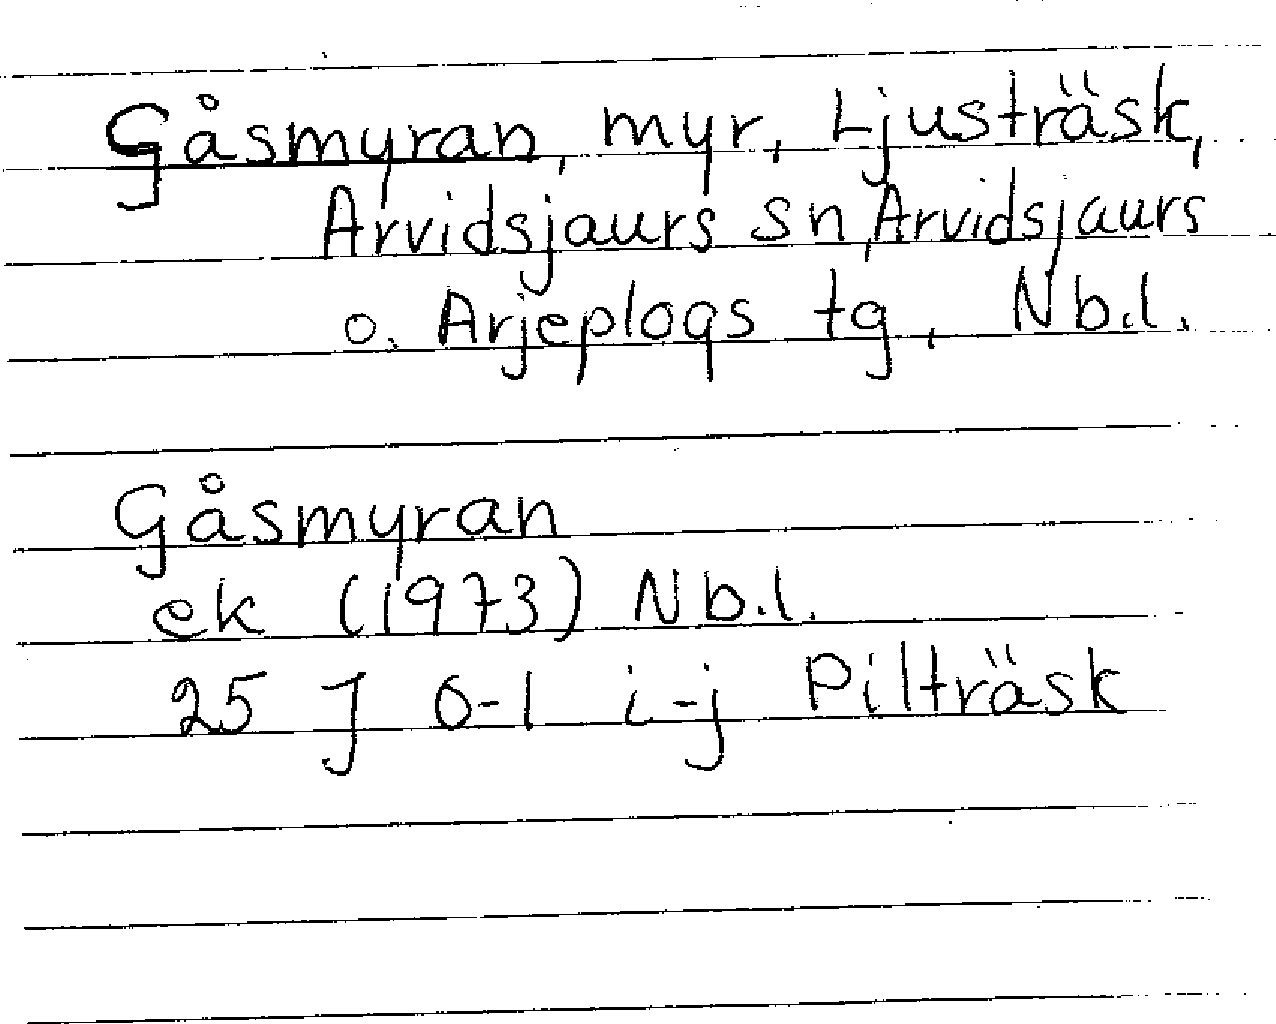 Gåsmyran, myr, Ljusträsk,
Arvidsjaurs sn, Arvidsjaurs
o. Arjeplogs tg, Nb.l.
Gåsmyran
ek (1973) Nb.l.
25 J 0-1 i-j Pilträsk